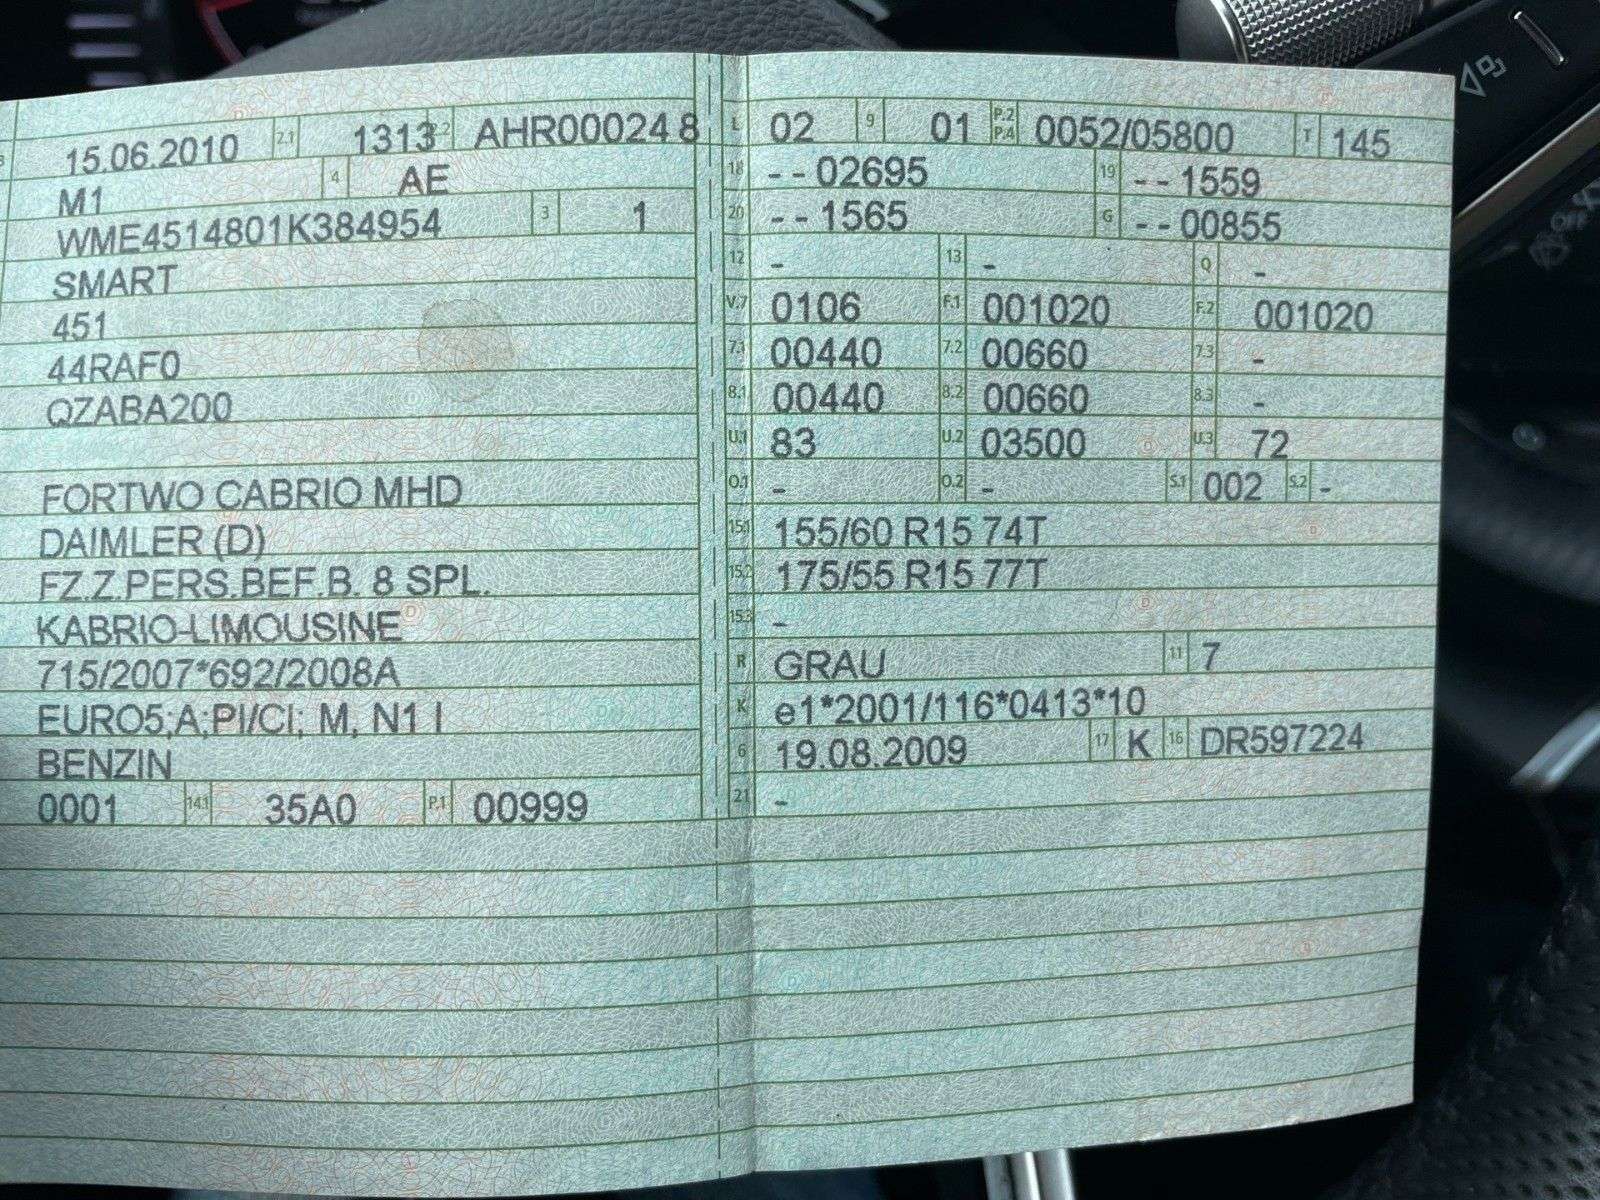 15.06.2010 2.1 1313 2.2 AHR00024 8
M1 4 AE
WME4514801K384954 3 1
SMART
451
44RAF0
QZABA200
FORTWO CABRIO MHD
DAIMLER (D)
FZ.Z.PERS.BEF.B. 8 SPL.
KABRIO-LIMOUSINE
715/2007*692/2008A
EURO5;A;PI/CI; M, N1 I
BENZIN
0001 14.1 35A0 P.1 00999
L 02 9 01 P.2 P.4 0052/05800 T 145
18 --02695 19 --1559
20 --1565 G --00855
12 - 13 - Q -
V.7 0106 F.1 001020 F.2 001020
7.1 00440 7.2 00660 7.3 -
8.1 00440 8.2 00660 8.3 -
U.1 83 U.2 03500 U.3 72
O.1 - O.2 - S.1 002 S.2 -
15.1 155/60 R15 74T
15.2 175/55 R15 77T
15.3 -
R GRAU 11 7
K e1*2001/116*0413*10
6 19.08.2009 17 K 16 DR597224
21 -
OFF